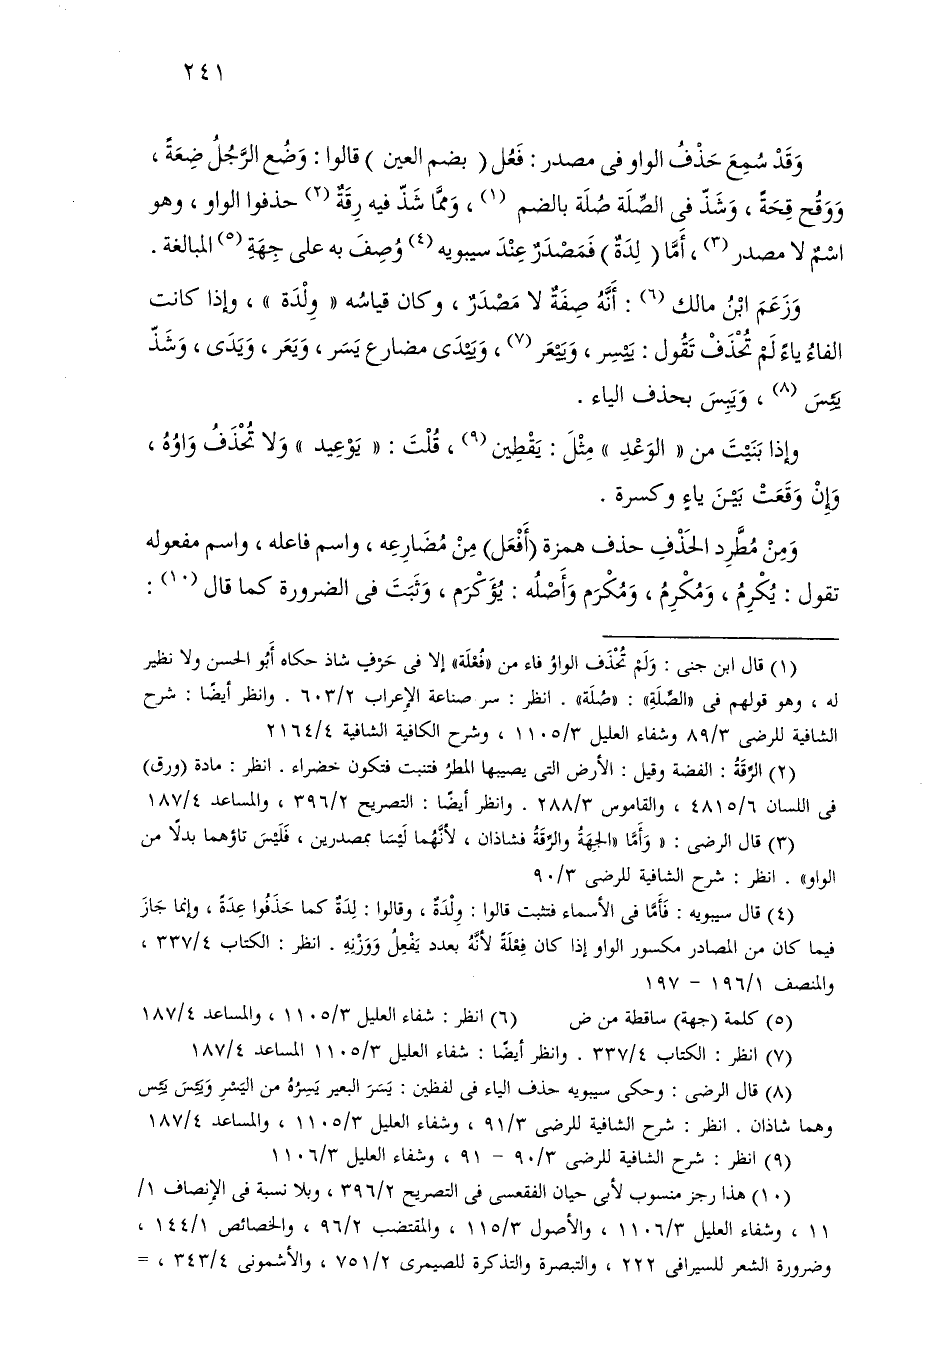 ٢٤١
وَقَدْ سُمِعَ حَذْفُ الواو فى مصدر : فَعُل ( بضم العين ) قالوا : وَضُع الرَّجُلُ ضِعَةً ،
وَوَقُح قِحَةً ، وَشَذّ فى الصِّلَة صُلَة بالضم (١) ، وَممَّا شَذّ فيه رِقَةٌ (٢) حذفوا الواو ، وهو
اسْمٌ لا مصدر (٣) ، أَمَّا ( لِدَةٌ ) فَمَصْدَرٌ عِنْدَ سيبويه (٤) وُصِفَ به على جِهَةِ (٥) المبالغة .
وَزَعَمَ ابْنُ مالك (٦) : أَنَّهُ صِفَةٌ لا مَصْدَرٌ ، وكان قياسُه « وِلْدَة » ، وإذا كانت
الفاءُ ياءً لَمْ تُحْذَفْ تَقُول : يَيْسِر ، وَيَيْعَر (٧) ، وَيَيْدَى مضارع يَسَر ، وَيَعَر ، وَيَدَى ، وَشَذّ
يَئِسَ (٨) ، وَيَبِسَ بحذف الياء .
وإذا بَنَيْتَ من « الوَعْدِ » مِثْلَ : يَقْطِين (٩) ، قُلْتَ : « يَوْعِيد » وَلا تُحْذَفُ وَاوُهُ ،
وَإِنْ وَقَعَتْ بَيْنَ ياءٍ وكسرة .
وَمِنْ مُطَّرِد الحَذْفِ حذف همزة (أَفْعَل) مِنْ مُضَارِعِه ، واسم فاعله ، واسم مفعوله
تقول : يُكْرِمُ ، وَمُكْرِمُ ، وَمُكْرَم وَأَصْلُه : يُؤَكْرَم ، وَثَبَتَ فى الضرورة كما قال (١٠) :
(١) قال ابن جنى : وَلَمْ تُحْذَف الواوُ فاء من «فُعْلَة» إلا فى حَرْفٍ شاذ حكاه أَبُو الحسن ولا نظير
له ، وهو قولهم فى «الصِّلَةِ» : «صُلَة» . انظر : سر صناعة الإعراب ٦٠٣/٢ . وانظر أيضًا : شرح
الشافية للرضى ٨٩/٣ وشفاء العليل ١١٠٥/٣ ، وشرح الكافية الشافية ٢١٦٤/٤
(٢) الرِّقَةُ : الفضة وقيل : الأرض التى يصيبها المطرُ فتنبت فتكون خضراء . انظر : مادة (ورق)
فى اللسان ٤٨١٥/٦ ، والقاموس ٢٨٨/٣ . وانظر أيضًا : التصريح ٣٩٦/٢ ، والمساعد ١٨٧/٤
(٣) قال الرضى : « وَأَمَّا «الجِهَةُ والرِّقَةُ فشاذان ، لأنَّهُما لَيْسَا بمصدرين ، فَلَيْسَ تاؤهما بدلًا من
الواو» . انظر : شرح الشافية للرضى ٩٠/٣
(٤) قال سيبويه : فَأَمَّا فى الأسماء فتثبت قالوا : وِلْدَةٌ ، وقالوا : لِدَةٌ كما حَذَفُوا عِدَةً ، وإنما جَازَ
فيما كان من المصادر مكسور الواو إذا كان فِعْلَةً لأنَّهُ بعدد يَفْعِلُ وَوَزْنِهِ . انظر : الكتاب ٣٣٧/٤ ،
والمنصف ١٩٦/١ – ١٩٧
(٥) كلمة (جهة) ساقطة من ض (٦) انظر : شفاء العليل ١١٠٥/٣ ، والمساعد ١٨٧/٤
(٧) انظر : الكتاب ٣٣٧/٤ . وانظر أيضًا : شفاء العليل ١١٠٥/٣ المساعد ١٨٧/٤
(٨) قال الرضى : وحكى سيبويه حذف الياء فى لفظين : يَسَرَ البعير يَسِرُهُ من اليَسْرِ وَيَئِسَ يَئِس
وهما شاذان . انظر : شرح الشافية للرضى ٩١/٣ ، وشفاء العليل ١١٠٥/٣ ، والمساعد ١٨٧/٤
(٩) انظر : شرح الشافية للرضى ٩٠/٣ – ٩١ ، وشفاء العليل ١١٠٦/٣
(١٠) هذا رجز منسوب لأبى حيان الفقعسى فى التصريح ٣٩٦/٢ ، وبلا نسبة فى الإنصاف ١/
١١ ، وشفاء العليل ١١٠٦/٣ ، والأصول ١١٥/٣ ، والمقتضب ٩٦/٢ ، والخصائص ١٤٤/١ ،
وضرورة الشعر للسيرافى ٢٢٢ ، والتبصرة والتذكرة للصيمرى ٧٥١/٢ ، والأشمونى ٣٤٣/٤ ، =